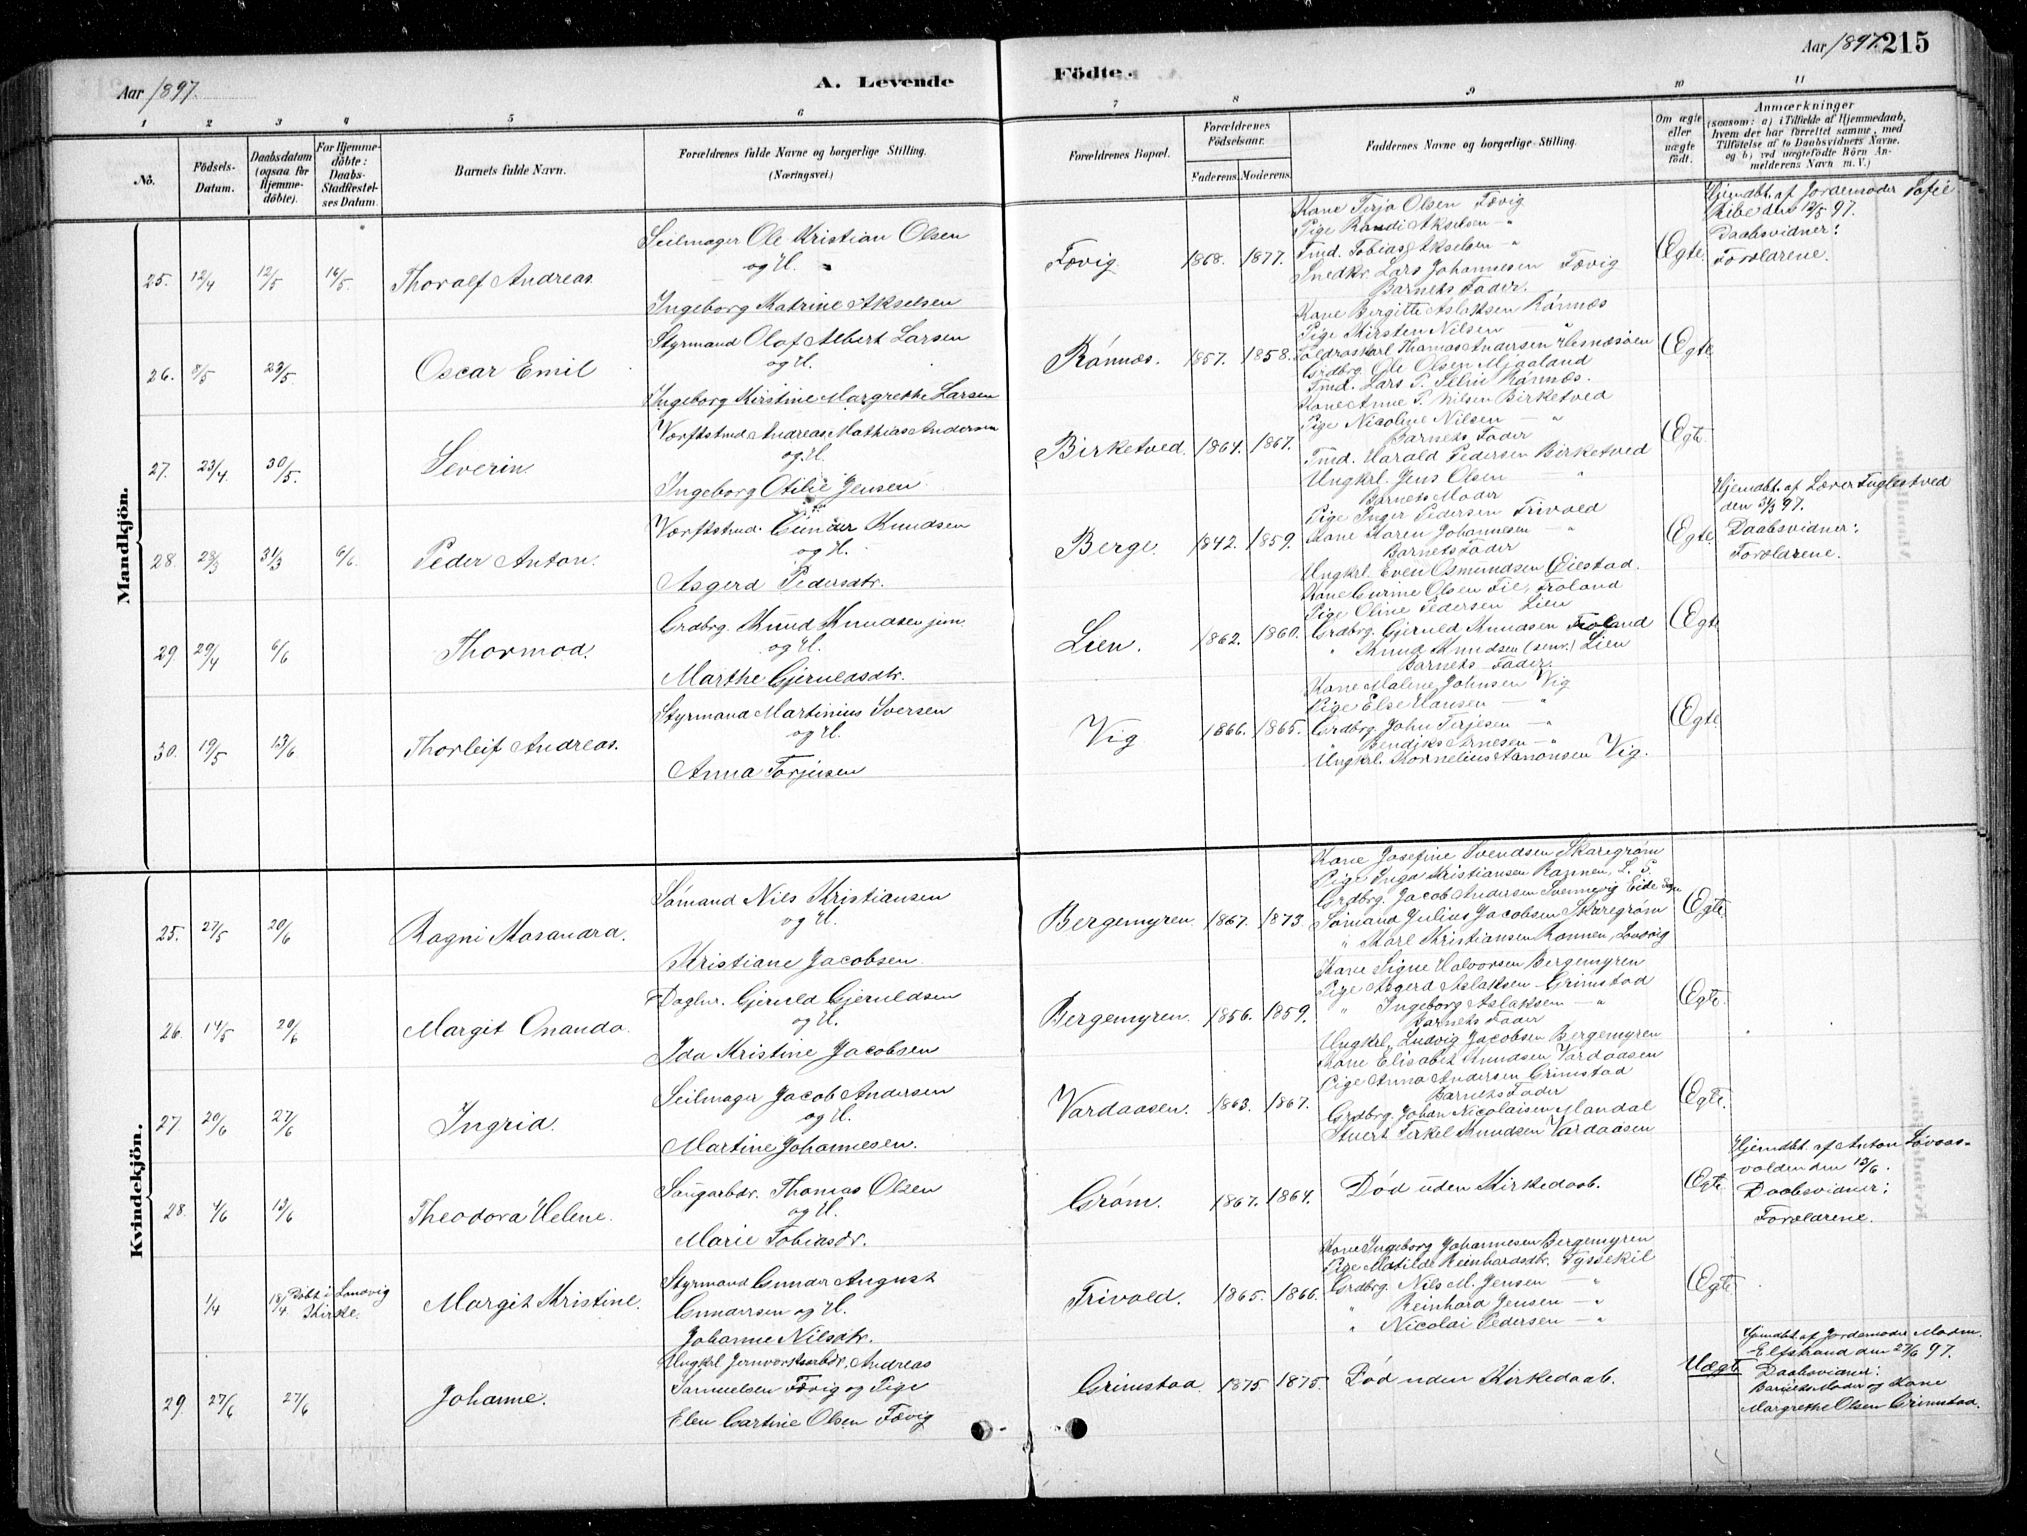 Aar 1897.
A. Levende
Födte.
Aar 1897. 215
1 2 3 4 5 6 7 8 9 10 11
No.
Födsels-Datum.
Daabsdatum (ogsaa for Hjemmedöbte).
For Hjemmedöbte: Daabs-Stadfæstelses Datum.
Barnets fulde Navn.
Forældrenes fulde Navne og borgerlige Stilling.
(Næringsvei.)
Forældrenes Bopæl.
Forældrenes Födselsaar.
Faderens. Moderens.
Faddernes Navne og borgerlige Stilling.
Om ægte eller uægte födt.
Anmærkninger
(saasom: a) i Tilfælde af Hjemmedaab, hvem der har forrettet samme, med Tilföielse af to Daabsvidners Navne, og b) ved uægtefödte Börn Anmelderens Navn m. V.)
Mandkjön.
25. 12/4 12/5 16/5. Thoralf Andreas.
Seilmager Ole Kristian Olsen
og H.
Ingeborg Katrine Akselsen
Fævig 1868. 1877.
Kone Terja Olsen Fævig
Pige Randi Akselsen "
Tmd. Tobias Akselsen "
Snedkr. Lars Johannesen Fævig
Barnets Fader.
Ægte
Hjemdbt. af Jordemoder Sofie
Ribe den 12/5 97.
Daabsvidner:
Forældrene.
26. 8/5 23/5. Oscar Emil
Styrmand Olaf Albert Larsen
og H.
Ingeborg Kirstine Margrethe Larsen
Rönnæs. 1857. 1858.
Kone Bergitte Aslaksen Rönnæs
Pige Kirsten Nilsen "
Thomas Andersen Hesnæsöen
Grdbrg. Ole Olsen Mjaaland
Tmd. Lars P. Rönnæs.
Ægte
27. 23/4 30/5. Severin
Værftstmd Andreas Mathias Andersen
og H.
Ingeborg Otilie Jensen
Birketved. 1864. 1867.
Kone Anne P. Nilsen Birketved
Pige Nicoline Nilsen "
Barnets Fader
Tmd. Harald Pedersen Birketved
Ungkrl. Jens Olsen "
Ægte
28. 28/3 31/3 6/6. Peder Anton.
Værftstmd. Gunder Knudsen
og H.
Asgerd Pedersdtr.
Berge. 1842. 1859.
Barnets Moder
Pige Inger Pedersen Trivold
Kone Karen Johannesen "
Barnets Fader
Ungkrl. Even Osmundsen Öiestad.
Ægte.
Hjemdbt. af Lærer Fuglestved
den 31/3 97.
Daabsvidner:
Forældrene.
29 29/4 6/6 Thormod.
Grdbrg. Knud Knudsen jun.
og H.
Marthe Gjeruldsdtr.
Lien. 1862. 1860.
Kone Gurine Olsen Froland
Pige Oline Pedersen Lien
Grdbrg. Gjeruld Knudsen Froland
" Knud Knudsen (senr.) Lien
Barnets Fader.
Ægte
30. 19/5 13/6 Thorleif Andreas.
Styrmand Martinius Iversen
og H.
Anna Torjusen
Vig 1866. 1865.
Kone Malene Johnsen Vig
Pige Else Hansen "
Grdbrg. John Terjesen "
" Bendiks Arnesen "
Ungkrl. Kornelius Aanonsen Vig.
Ægte.
Kvindekjön.
25. 27/5 20/6 Ragni Kasandra.
Sömand Nils Kristiansen
og H.
Kristiane Jacobsen.
Bergemyren. 1867. 1873.
Kone Josefine Svendsen Skaregröm
Pige Inga Kristiansen Rannen, L. S.
Grdbrg. Jacob Andersen Svennevig Eide Sogn
Sömand Julius Jacobsen Skaregröm
" Karl Kristiansen Rannen, Landvig
Ægte
26. 14/5 20/6 Margit Ananda.
Daglnr. Gjeruld Gjeruldsen
og H.
Ida Kristine Jacobsen
Bergemyren. 1856. 1859.
Kone Signe Halvorsen Bergemyren
Pige Asgerd Aslaksen Grimstad
" Ingeborg Aslaksen "
Barnets Fader
Ungkrl. Ludvig Jacobsen Bergemyren
Ægte.
27. 20/6 27/6 Ingrid.
Seilmager Jacob Andersen
og H.
Martine Johannesen.
Vardaasen. 1863. 1867.
Kone Elisabet Knudsen Vardaasen
Pige Anna Andersen Grimstad
Barnets Fader
Grdbrg. Johan Nicolaisen Mandal
Stuert Terkel Knudsen Vardaasen
Ægte.
28. 4/6 13/6 Theodora Helene.
Saugarbdr. Thomas Olsen
og H.
Marie Tobiasdr.
Gröm. 1867. 1864.
Död uden Kirkedaab.
Ægte
Hjemdbt. af Anton
den 13/6.
Daabsvidner:
Forældrene.
1/4 18/4 Döbt i Landvig Kirke. Margit Kristine.
Styrmand Gunder August
Gundersen og H.
Johanne Nilsdtr.
Trivold. 1865. 1866.
Kone Ingeborg Johannesen Bergemyren
Pige Matilde Reinhardsdtr. Tyssekil
Grdbrg. Nils M. Jensen "
" Reinhard Jensen "
" Nicolai Pedersen "
Ægte.
29 27/6 27/6 Johanne.
Ungkrl Jernværksarbdr. Andreas
Samuelsen Fævig og Pige
Elen Cartine Olsen Fævig
Grimstad. 1875. 1875.
Död uden Kirkedaab.
Uægt.
Hjemdbt. af Jordemoder Madm.
Elfstrand den 27/6 97.
Daabsvidner:
Barnets Moder og Kone
Margrethe Olsen Grimstad.